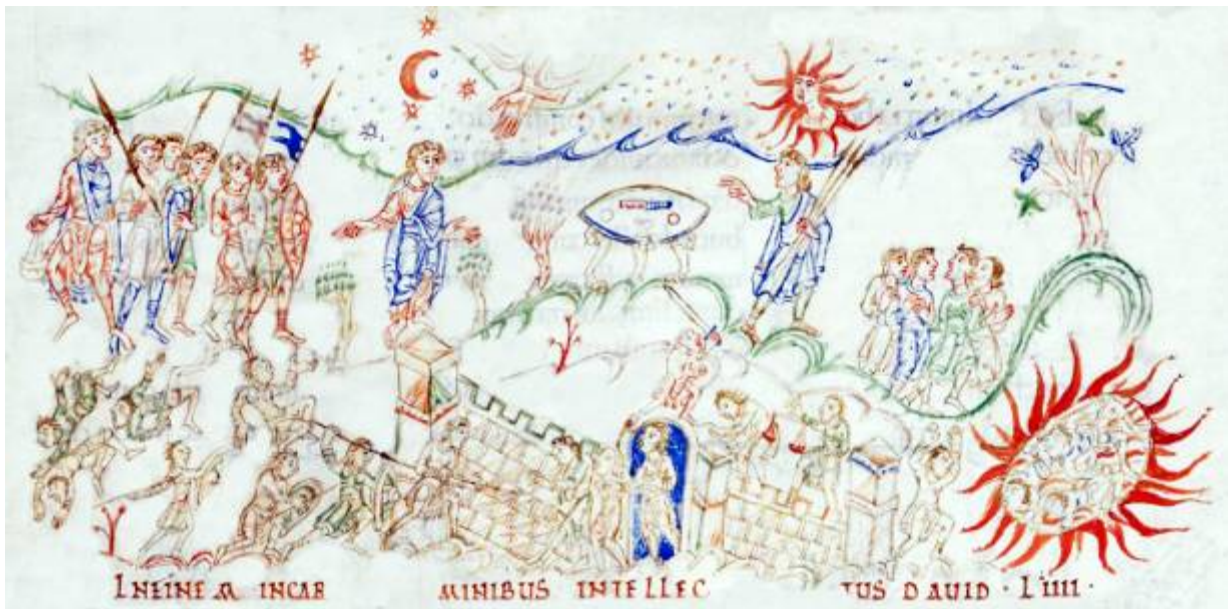 INFINEM INCAR MINIBUS INTELLEC TUS DAVID · LIIII ·